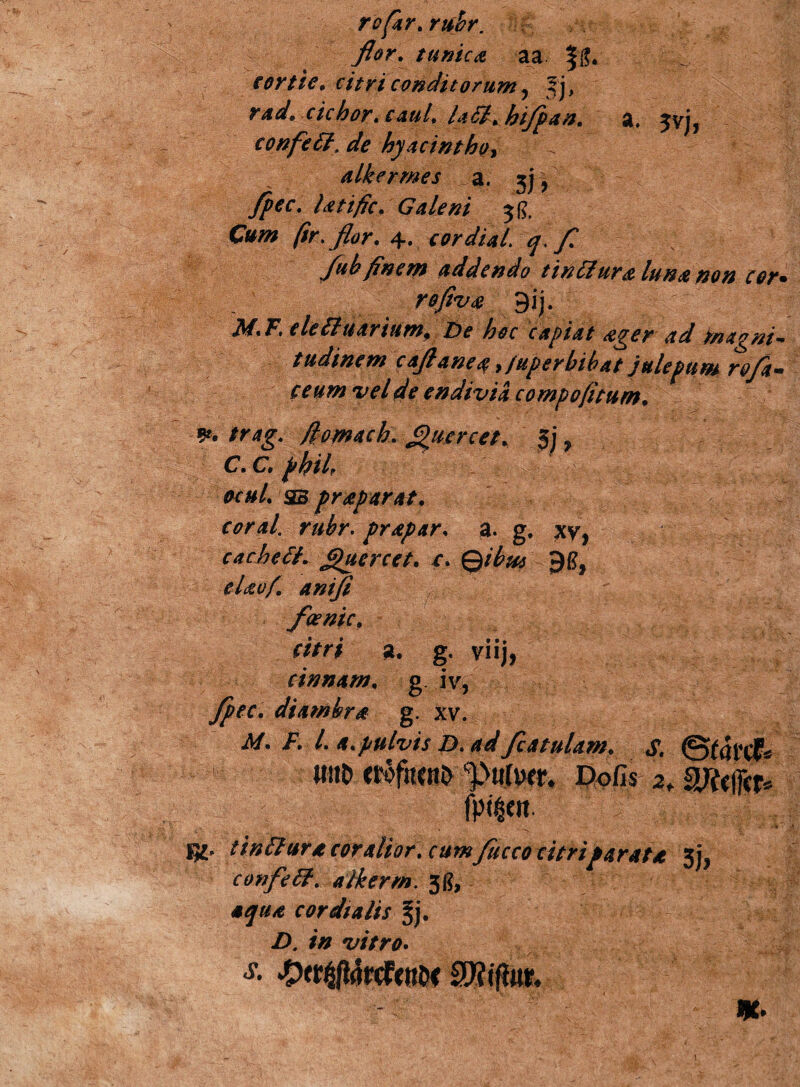 rosar. rubr.
flor. tunicæ aa. ℥ß.
cortic. citri conditorum, ℥j,
rad. cichor. caul. lact. hispan. a. ʒvj,
confect. de hyacintho,
alkermes a. ʒj,
spec. lætific. Galeni ʒß.
Cum sir. flor. 4. cordial. q. s.
sub finem addendo tincturæ lunæ non cor-
rosivæ ℈ij.
M. F. electuarium. De hoc capiat æger ad magni-
tudinem castaneæ, superbibat julepum rosa-
ceum vel de endiviâ compositum.
℞. trag. stomach. Quercet. ʒj,
C. C. phil.
ocul. ♋ præparat.
coral. rubr. præpar. a. g. xv,
cachect. Quercet. c. ♂ibus ℈ß,
elæos. anisi
fœnic.
citri a. g. viij,
cinnam. g. iv,
spec. diambræ g. xv.
M. F. l. a. pulvis D. ad scatulam. S. Stärck-
und eröfnend Pulver. Dosis 2. Messer-
spitzen.
℞. tincturæ coralior. cum succo citri paratæ ʒj,
confect. alkerm. ʒß,
aquæ cordialis ℥j.
D. in vitro.
S. Hertzstärckende Mixtur.
℞.